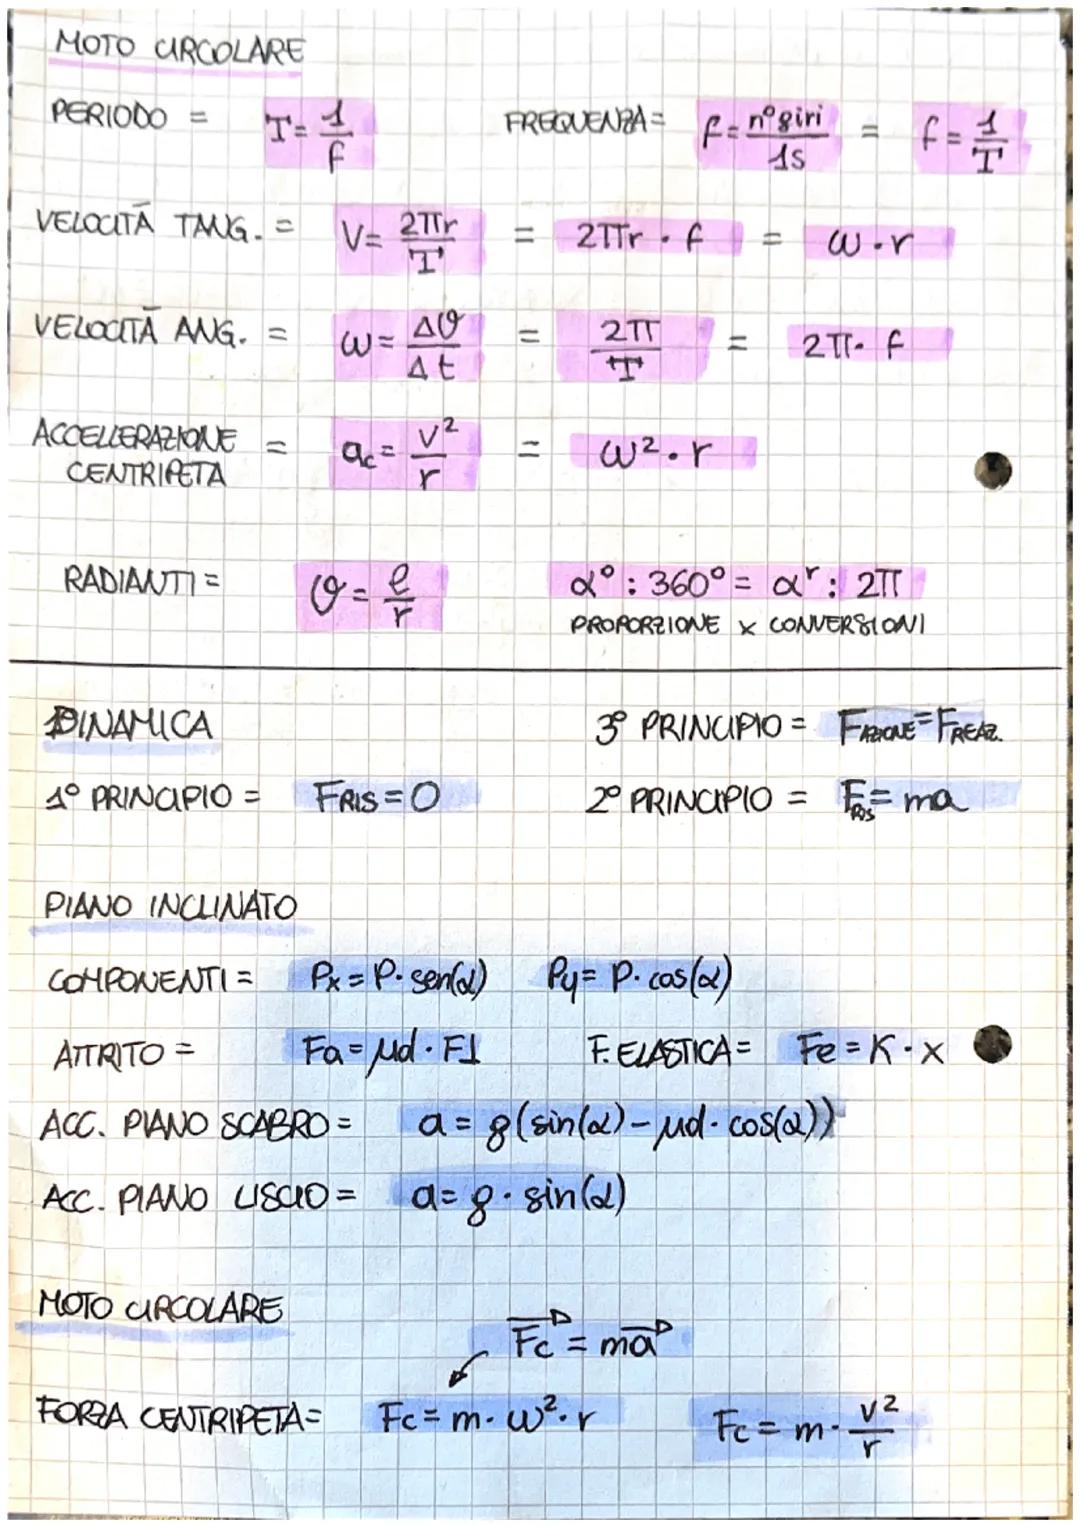 MOTO CIRCOLARE
PERIODO = T = 1/f FREQUENZA = f = n° giri/1s = f = 1/T
VELOCITÀ TANG. = V = 2πr/T = 2πr · f = ω · r
VELOCITÀ ANG. = ω = Δϑ/Δt = 2π/T = 2π · f
ACCELLERAZIONE CENTRIPETA = ac = v²/r = ω² · r
RADIANTI = ϑ = l/r α° : 360° = αʳ : 2π
PROPORZIONE x CONVERSIONI
DINAMICA 3° PRINCIPIO = FAZIONE = FREAZ.
1° PRINCIPIO = FRIS = 0 2° PRINCIPIO = FRIS = ma
PIANO INCLINATO
COMPONENTI = Px = P · sen(α) Py = P · cos(α)
ATTRITO = Fa = μd · F⊥ F. ELASTICA = Fe = K · x
ACC. PIANO SCABRO = a = g(sin(α) - μd · cos(α))
ACC. PIANO LISCIO = a = g · sin(α)
MOTO CIRCOLARE
Fc = ma
FORZA CENTRIPETA = Fc = m · ω² · r Fc = m · v²/r